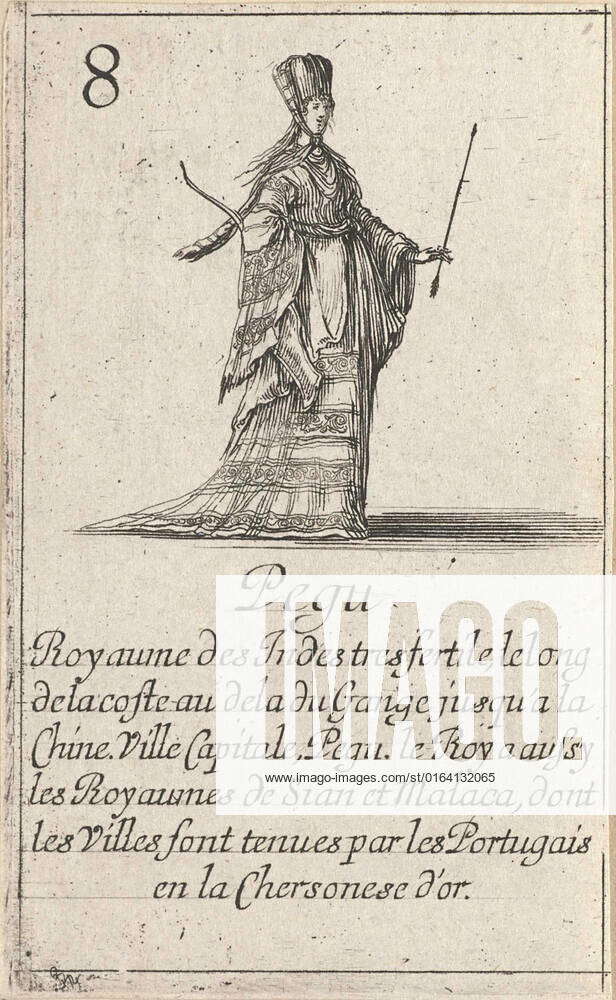 8
Pegu
Royaume des Indes tres fertile le long
de la coste au dela du Gange jusqu'a la
Chine. Ville Capitale, Pegu. le Roy a aussy
les Royaumes de Sian et Malaca, dont
les Villes sont tenues par les Portugais
en la Chersonese d'or.
IMAGO.
www.imago-images.com/st/0164132065